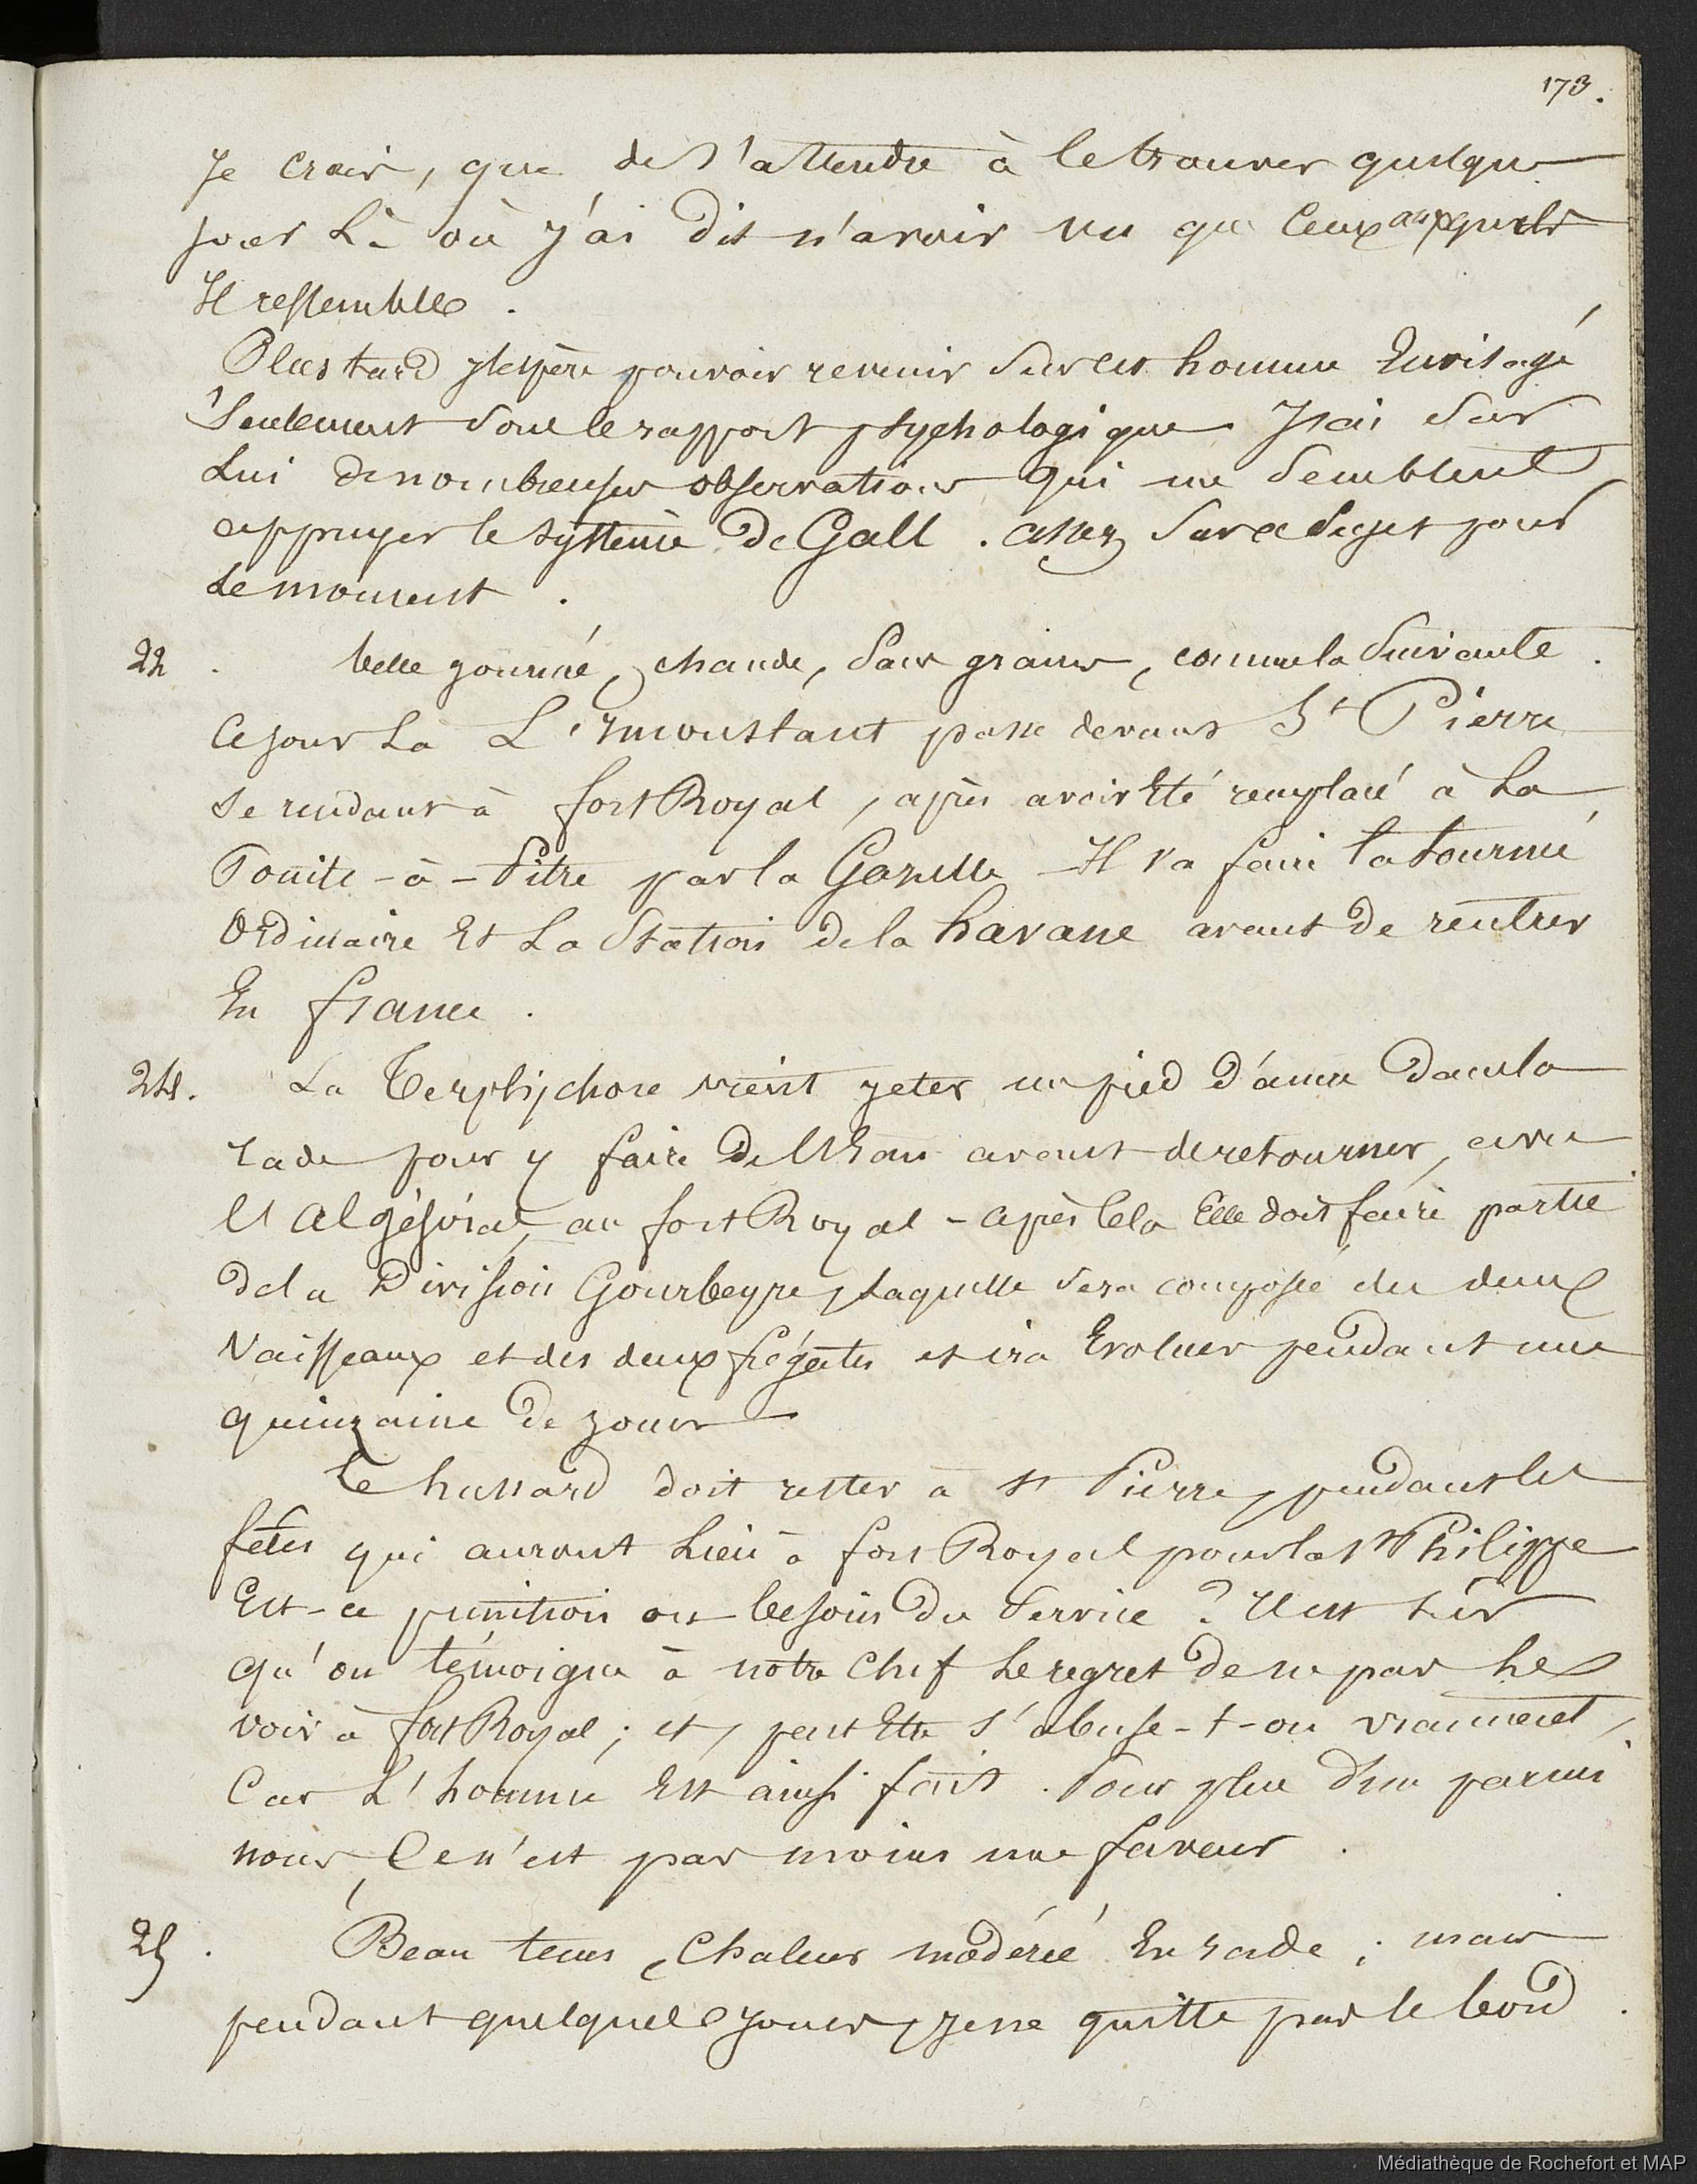 173.
Je crois, que de s'attendre à le trouver quelque
jour là où j'ai dit n'avoir vu que ceux auxquels
Il ressemble.
Plus tard j'espère pouvoir revenir sur cet homme Envisagé
seulement sous le rapport psychologique J'ai sur
Lui de nombreuses observations qui me semblent
appuyer le système de Gall. assez sur ce sujet pour
le moment.
22. belle journée, chaude, sans grains, comme la suivante.
Ce jour là L' passe devant St Pierre
se rendant à fort Royal, après avoir Eté remplacé à La
Pointe-à-Pitre par la Gazelle - Il va faire la tournée
Ordinaire Et La Station de la havane avant de rentrer
En france.
24. La Terpsychore vient jeter un pied d'ancre dans la
rade pour y faire de l'Eau avant de retourner, avec
l'algésiras, au fort Royal - après cela Elle doit faire partie
de la Division Gourbeyre, Laquelle sera composée des deux
Vaisseaux et des deux frégates et ira Evoluer pendant une
quinzaine de jours
Le hussard doit rester à St Pierre, pendant les
fêtes qui auront Lieu à fort Royal pour la St Philippe
Est-ce punition ou besoin du Service ? Il est sûr
qu'on témoigne à notre chef Le regret de ne pas Le
voir à fort Royal ; et, peut Etre s'abuse-t-on vraiment,
Car L'homme Est ainsi fait. Pour plus d'un parmi
nous, Ce n'est pas moins une faveur.
25. Beau tems, Chaleur modérée En rade ; mais
pendant quelques jours, je ne quitte pas le bord.
Médiathèque de Rochefort et MAP